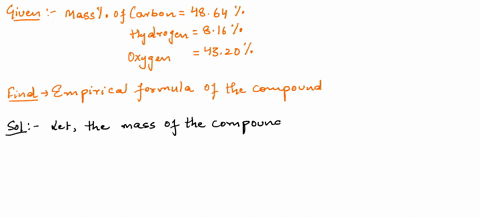 Given :- Mass % of Carbon = 48.64 %
Hydrogen = 8.16 %
Oxygen = 43.20 %
Find → Empirical formula of the compound
Sol :- Let, the mass of the compound